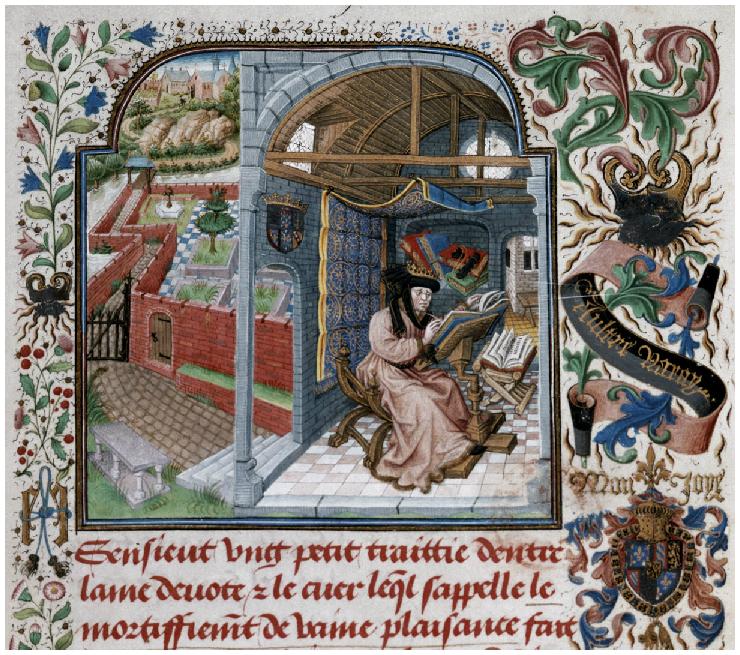 Mon Joye
Sensieut vng petit traittie dentre
lame deuote ⁊ le cuer leq̄l sappelle le
mortiffiem̄t de vaine plaisance fait